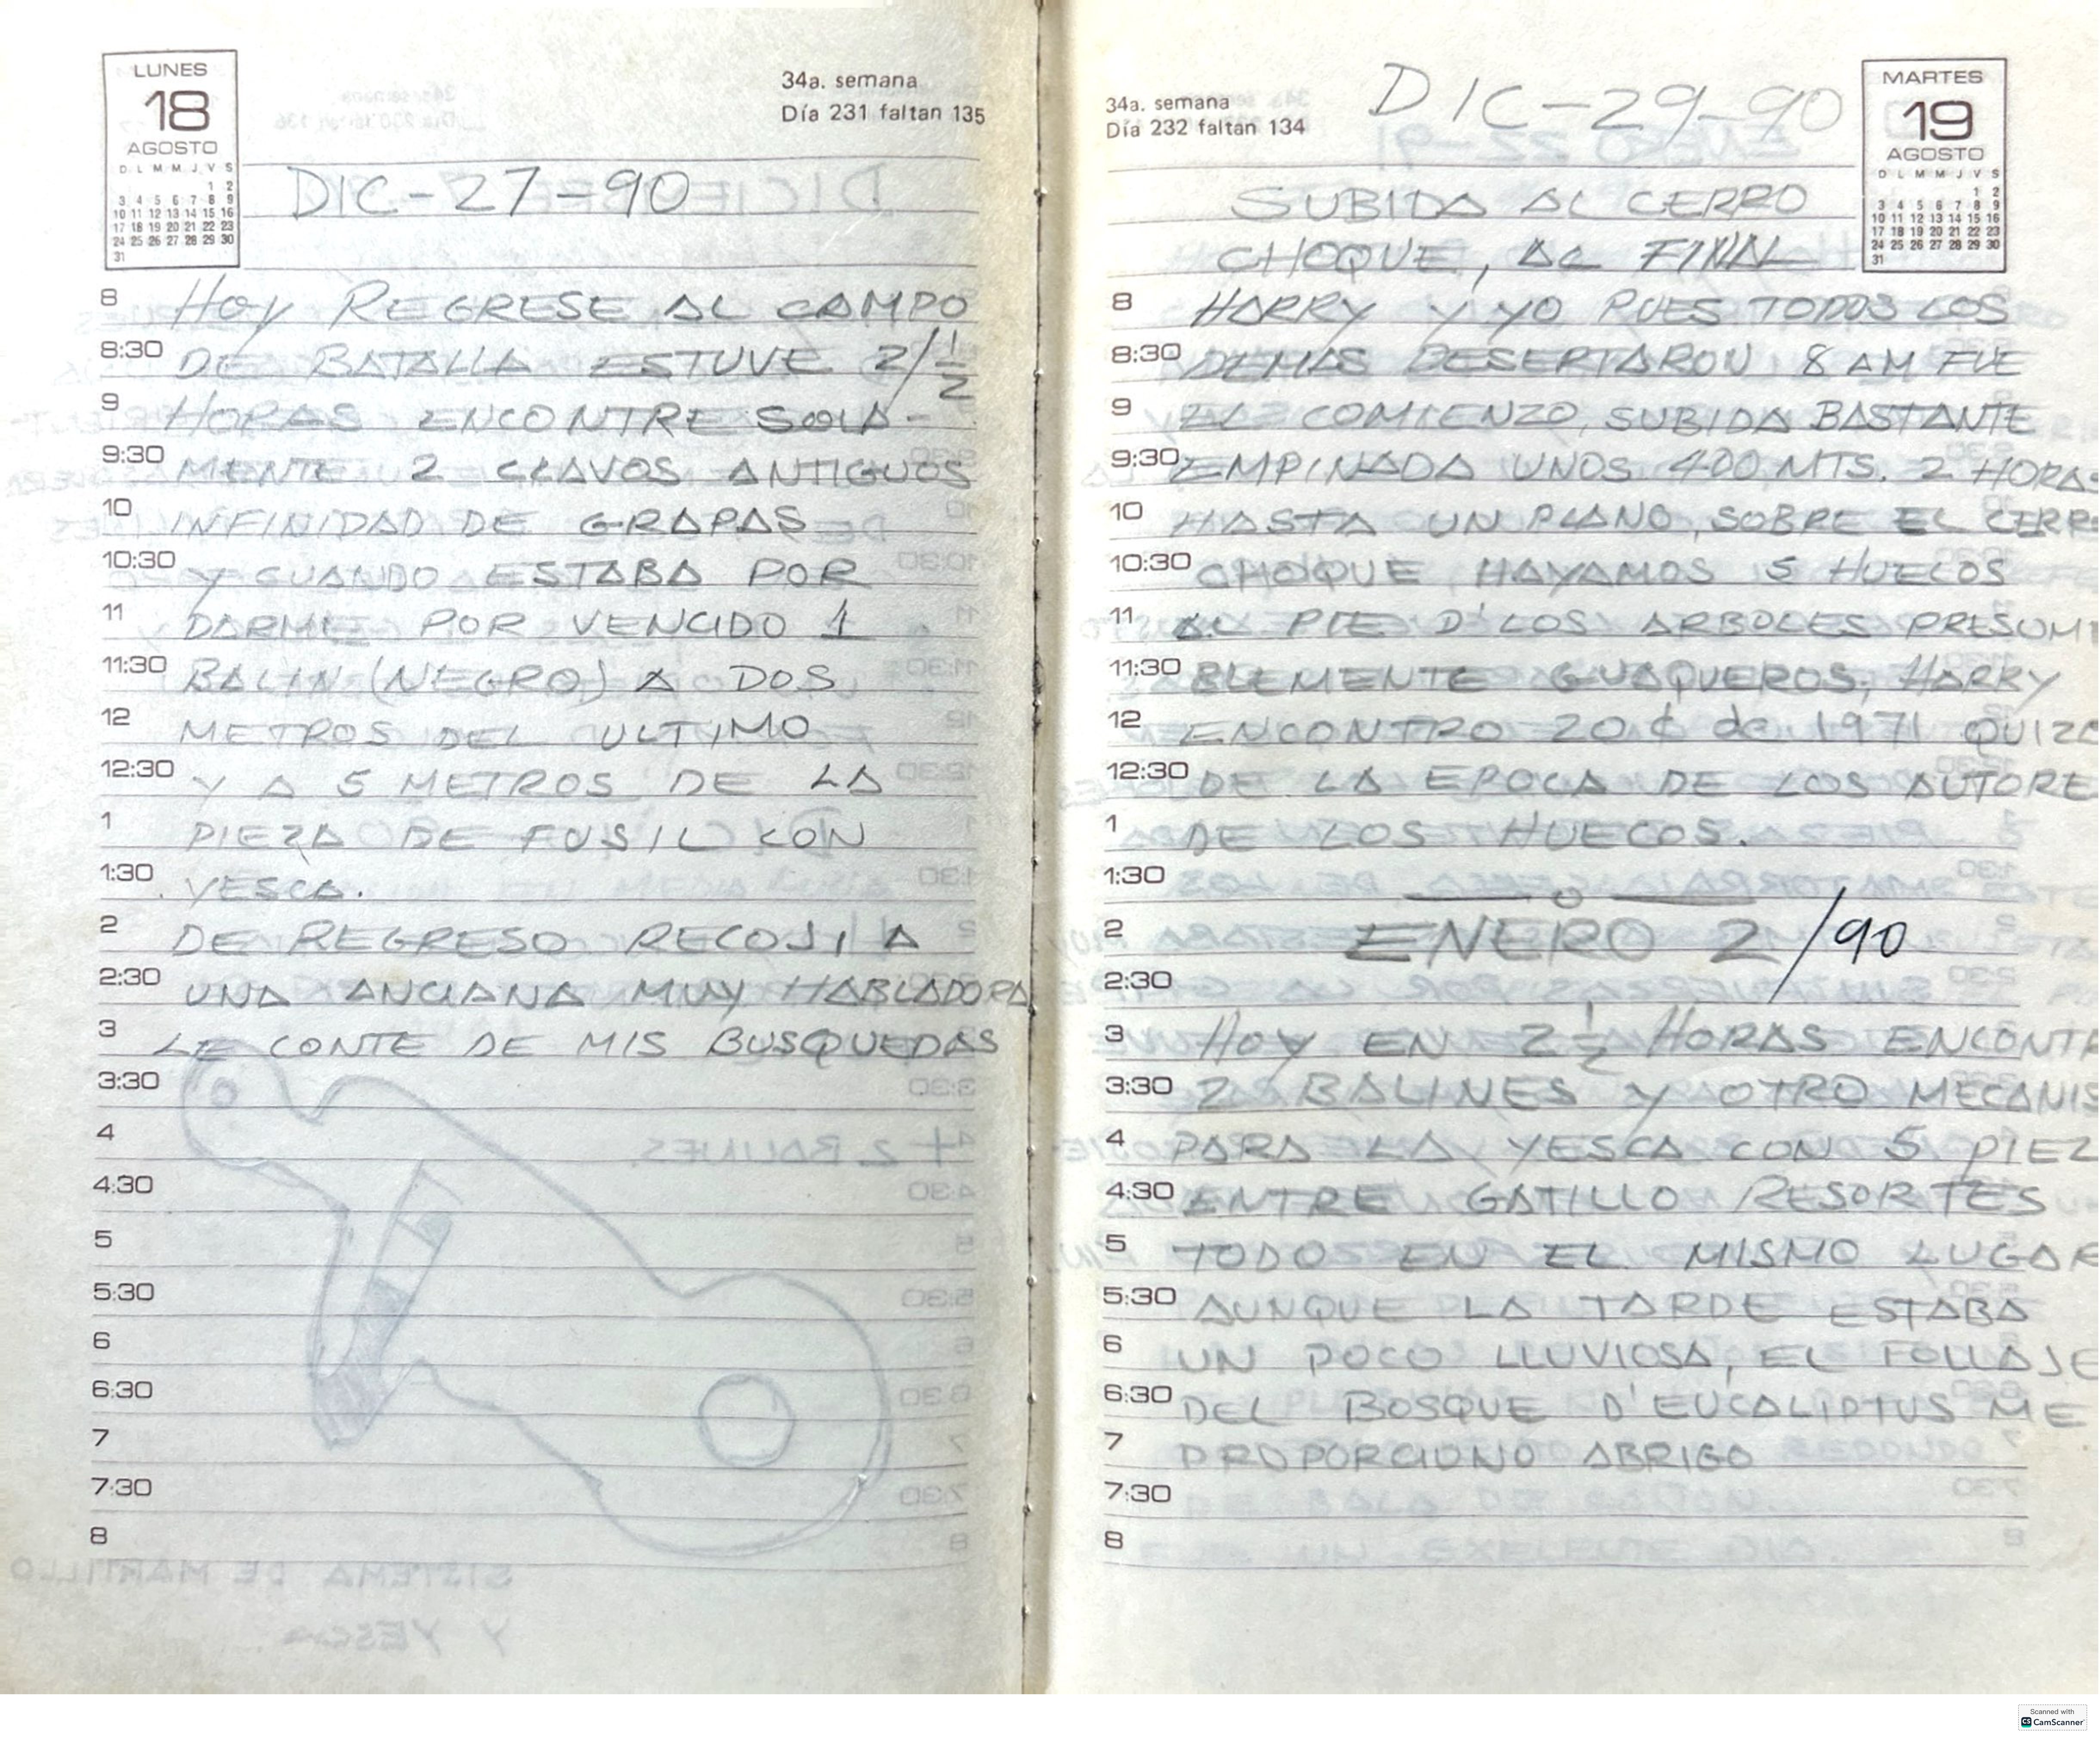 LUNES
18
AGOSTO
D L M M J V S
1 2
3 4 5 6 7 8 9
10 11 12 13 14 15 16
17 18 19 20 21 22 23
24 25 26 27 28 29 30
31
34a. semana
Día 231 faltan 135
DIC-27-90
8 HOY REGRESE AL CAMPO
8:30 DE BATALLA ESTUVE 2/½
9 HORAS ENCONTRE SOLA-
9:30 MENTE 2 CLAVOS ANTIGUOS
10 INFINIDAD DE GRAPAS
10:30 Y CUANDO ESTABA POR
11 DARME POR VENCIDO 1
11:30 BALIN (NEGRO) A DOS
12 METROS DEL ULTIMO
12:30 Y A 5 METROS DE LA
1 PIEZA DE FUSIL CON
1:30 YESCA.
2 DE REGRESO RECOJI A
2:30 UNA ANCIANA MUY HABLADORA
3 LE CONTE DE MIS BUSQUEDAS
3:30
4
4:30
5
5:30
6
6:30
7
7:30
8
34a. semana
Día 232 faltan 134
DIC-29-90
MARTES
19
AGOSTO
D L M M J V S
1 2
3 4 5 6 7 8 9
10 11 12 13 14 15 16
17 18 19 20 21 22 23
24 25 26 27 28 29 30
31
SUBIDA AL CERRO
CHOQUE, AL FINAL
8 HARRY Y YO PUES TODOS LOS
8:30 DEMAS DESERTARON 8 AM FUE
9 EL COMIENZO, SUBIDA BASTANTE
9:30 EMPINADA UNOS 400 MTS. 2 HORAS
10 HASTA UN PLANO, SOBRE EL CERR
10:30 CHOQUE HAYAMOS 5 HUECOS
11 AL PIE D'LOS ARBOLES PRESUMI
11:30 BLEMENTE GUAQUEROS, HARRY
12 ENCONTRO 20 ¢ de 1971 QUIZA
12:30 DE LA EPOCA DE LOS AUTORE
1 DE LOS HUECOS.
1:30
2 ENERO 2/90
2:30
3 HOY EN 2 ½ HORAS ENCONTR
3:30 2 BALINES Y OTRO MECANIS
4 PARA LA YESCA CON 5 PIEZ
4:30 ENTRE GATILLO RESORTES
5 TODO EN EL MISMO LUGAR
5:30 AUNQUE LA TARDE ESTABA
6 UN POCO LLUVIOSA, EL FOLLAJE
6:30 DEL BOSQUE D'EUCALIPTUS ME
7 PROPORCIONO ABRIGO
7:30
8
Scanned with
CS CamScanner